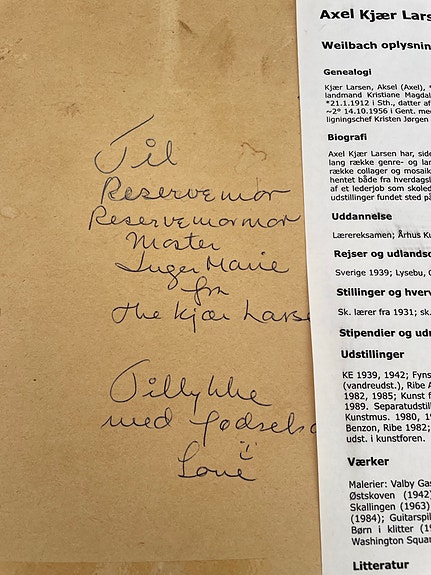 Til
Reservemor
Reservemormor
Moster
Inger Marie
fra
the Kjær Larse
Tillykke
med fødsels
Lone
Axel Kjær Lars
Weilbach oplysnin
Genealogi
Kjær Larsen, Aksel (Axel), *
landmand Kristiane Magdal
*21.1.1912 i Sth., datter af
~2° 14.10.1956 i Gent. me
ligningschef Kristen Jørgen
Biografi
Axel Kjær Larsen har, side
lang række genre- og lan
række collager og mosaik
hentet både fra hverdagsl
af et lederjob som skoled
udstillinger fundet sted på
Uddannelse
Lærereksamen; Århus Ku
Rejser og udlandso
Sverige 1939; Lysebu, O
Stillinger og hverv
Sk. lærer fra 1931; sk.
Stipendier og ud
Udstillinger
KE 1939, 1942; Fyns
(vandreudst.), Ribe A
1982, 1985; Kunst f
1989. Separatudstil
Kunstmus. 1980, 1
Benzon, Ribe 1982;
udst. i kunstforen.
Værker
Malerier: Valby Gas
Østskoven (1942)
Skallingen (1963)
(1984); Guitarspil
Børn i klitter (19
Washington Squar
Litteratur